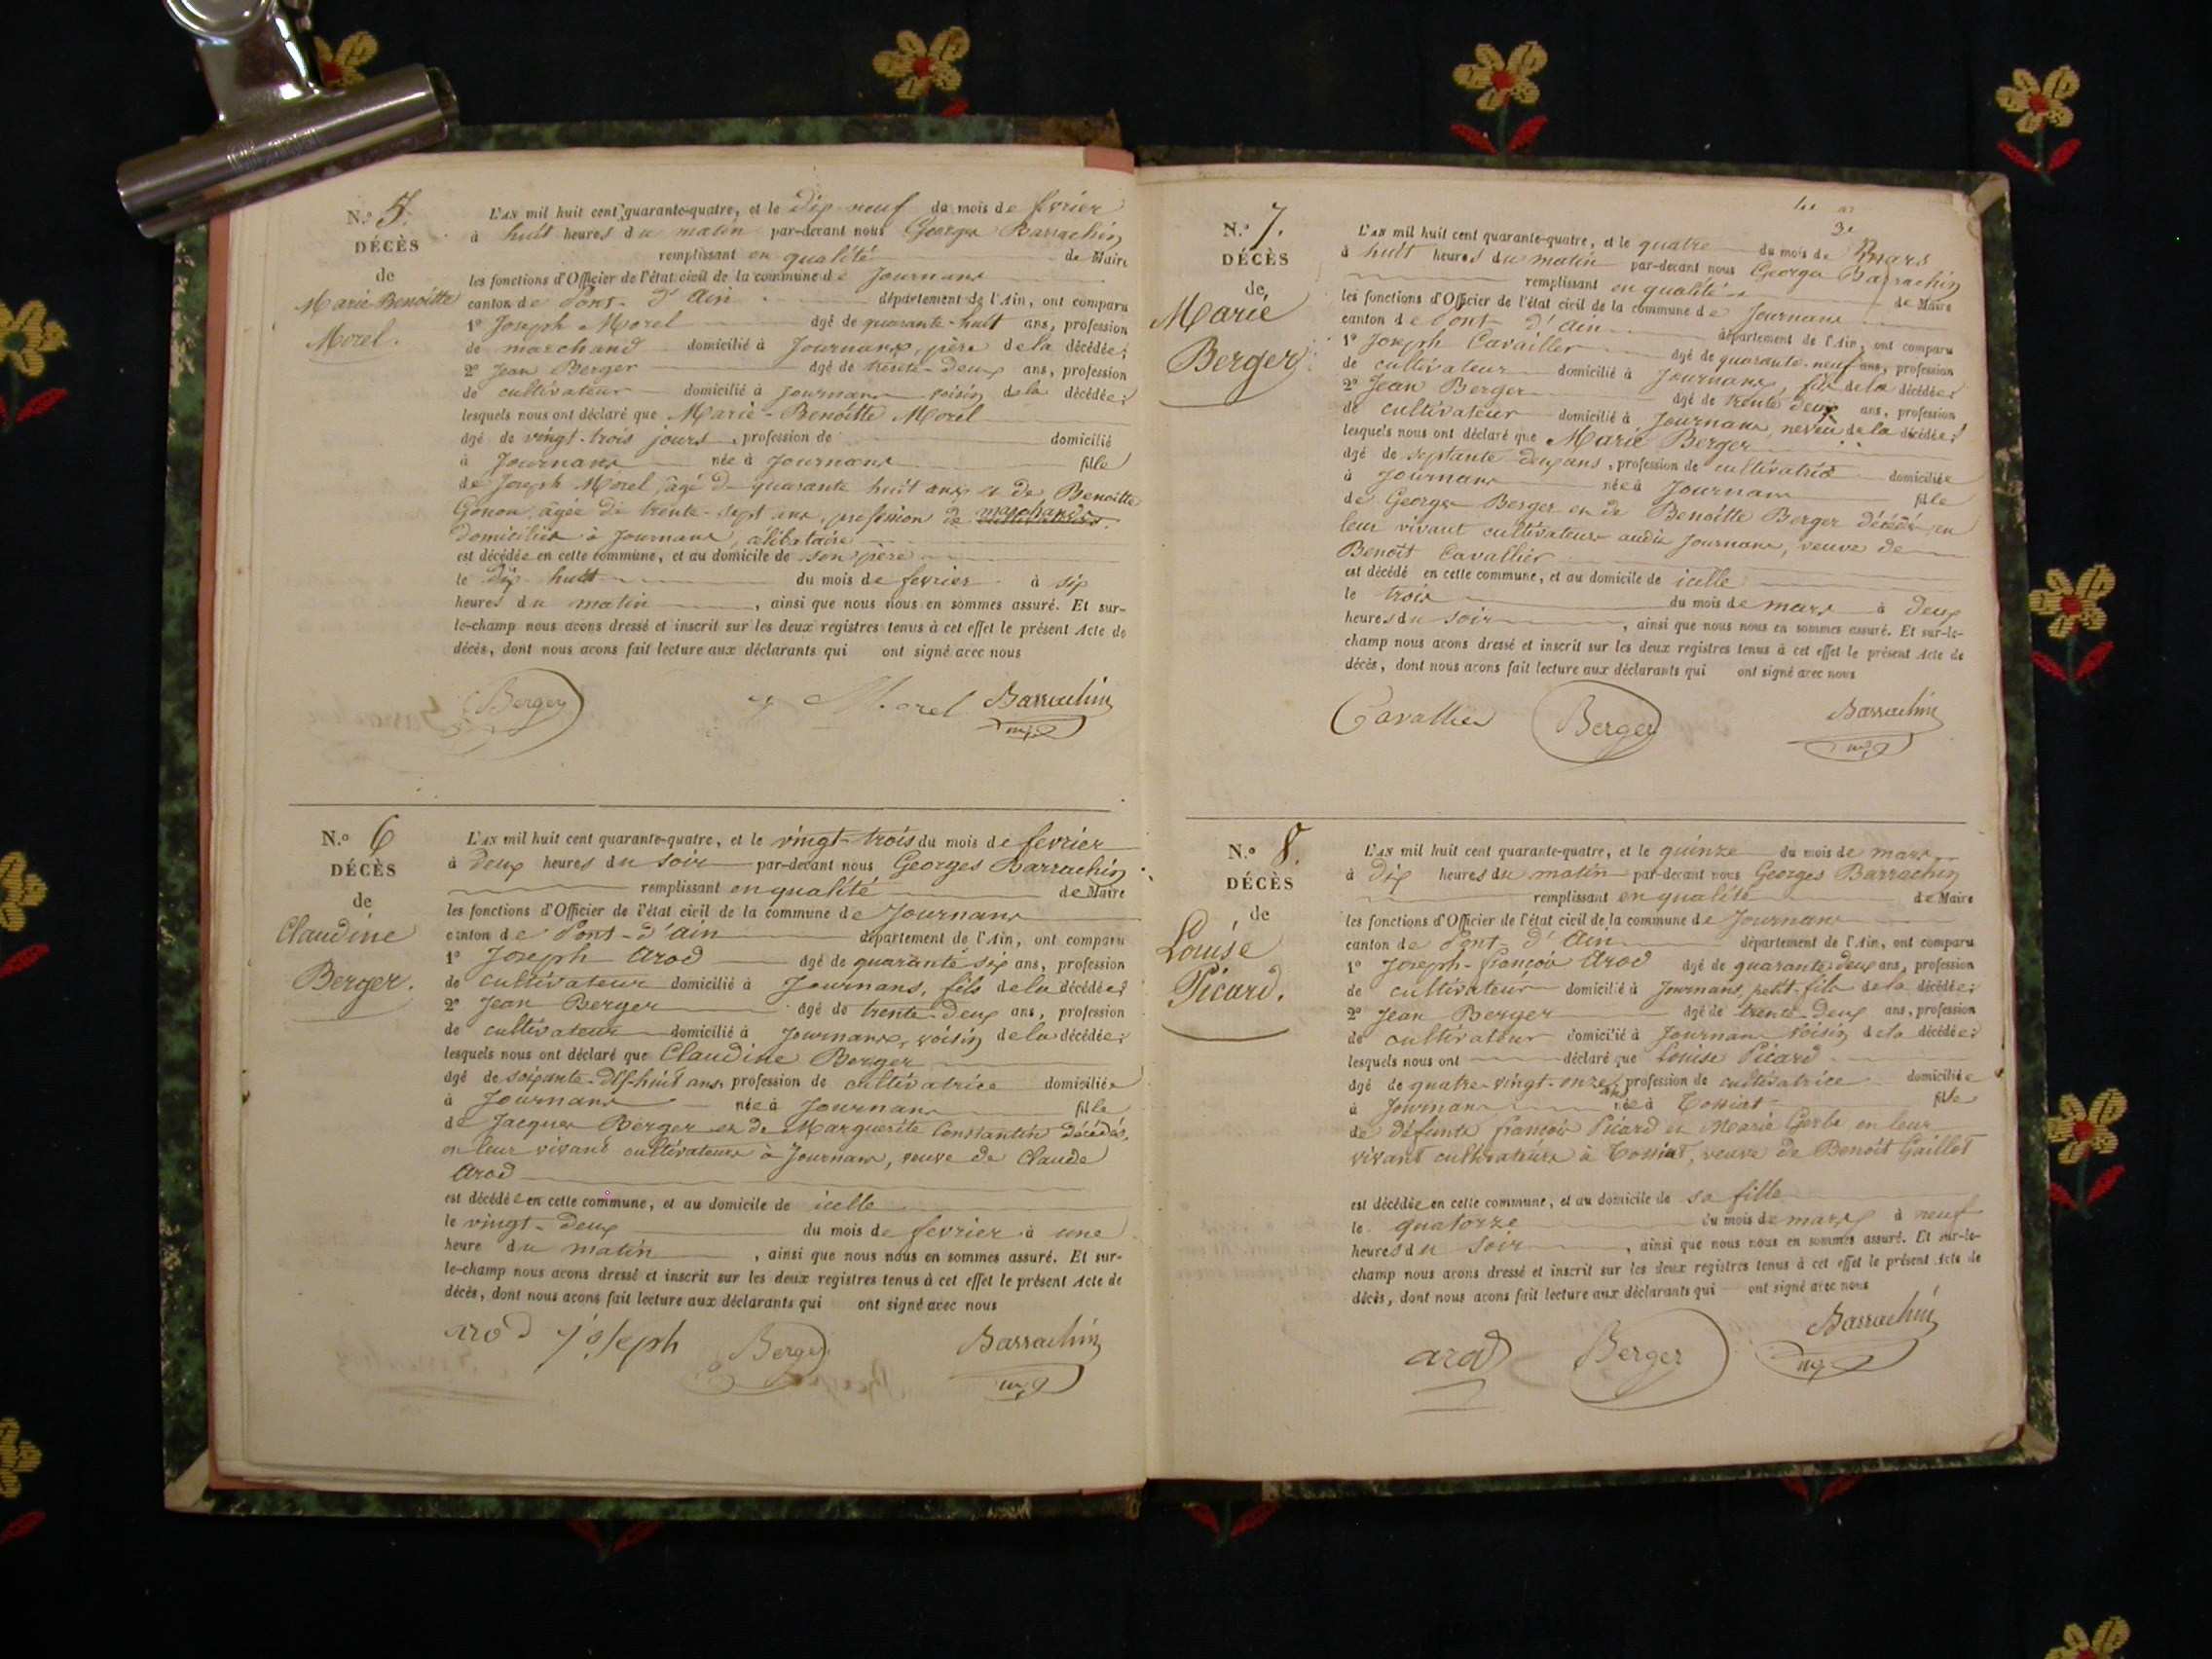 N.º 5.
DÉCÈS
de
Marie Benoitte
Morel.
L'AN mil huit cent quarante-quatre, et le dix neuf du mois de fevrier
à huit heures du matin par-devant nous Georges Barrachin
remplissant en qualité de Maire
les fonctions d'Officier de l'état civil de la commune de Journans
canton de Pont-d'ain département de l'Ain, ont comparu
1º Joseph Morel âgé de quarante-huit ans, profession
de marchand domicilié à Journans, père de la décédée;
2º Jean Berger âgé de trente-deux ans, profession
de cultivateur domicilié à Journans voisin de la décédée;
lesquels nous ont déclaré que Marie-Benoitte Morel
âgé de vingt-trois jours, profession de domicilié
à Journans née à Journans fille
de Joseph Morel, âgé de quarante huit ans et de Benoitte
Gonon, âgée de trente-sept ans, profession de marchands
domiciliés à Journans, célibataire
est décédée en cette commune, et au domicile de son père
le dix-huit du mois de fevrier à six
heures du matin, ainsi que nous nous en sommes assuré. Et sur-
le-champ nous avons dressé et inscrit sur les deux registres tenus à cet effet le présent Acte de
décès, dont nous avons fait lecture aux déclarants qui ont signé avec nous
Berger Morel Barrachin
N.º 6
DÉCÈS
de
Claudine
Berger.
L'AN mil huit cent quarante-quatre, et le vingt-trois du mois de fevrier
à deux heures du soir par-devant nous Georges Barrachin
remplissant en qualité de Maire
les fonctions d'Officier de l'état civil de la commune de Journans
canton de Pont-d'ain département de l'Ain, ont comparu
1º Joseph Arod âgé de quarante six ans, profession
de cultivateur domicilié à Journans, fils de la décédée;
2º Jean Berger âgé de trente-deux ans, profession
de cultivateur domicilié à Journans, voisin de la décédée;
lesquels nous ont déclaré que Claudine Berger
âgé de soixante-dix-huit ans, profession de cultivatrice domiciliée
à Journans née à Journans fille
de Jacques Berger et de Marguerite Constantin décédés,
en leur vivant cultivateurs à Journans, veuve de Claude
Arod
est décédée en cette commune, et au domicile de icelle
le vingt-deux du mois de fevrier à une
heure du matin, ainsi que nous nous en sommes assuré. Et sur-
le-champ nous avons dressé et inscrit sur les deux registres tenus à cet effet le présent Acte de
décès, dont nous avons fait lecture aux déclarants qui ont signé avec nous
arod joseph Berger Barrachin
N.º 7.
DÉCÈS
de
Marie
Berger
L'AN mil huit cent quarante-quatre, et le quatre du mois de Mars
à huit heures du matin par-devant nous Georges Barrachin
remplissant en qualité de Maire
les fonctions d'Officier de l'état civil de la commune de Journans
canton de Pont d'ain département de l'Ain, ont comparu
1º Joseph Cavallier âgé de quarante-neuf ans, profession
de cultivateur domicilié à Journans, fils de la décédée;
2º Jean Berger âgé de trente deux ans, profession
de cultivateur domicilié à Journans, neveu de la décédée;
lesquels nous ont déclaré que Marie Berger
âgé de septante deux ans, profession de cultivatrice domiciliée
à Journans née à Journans fille
de Georges Berger et de Benoitte Berger décédés en
leur vivant cultivateurs audit Journans, veuve de
Benoît Cavallier
est décédé en cette commune, et au domicile de icelle
le trois du mois de mars à deux
heures du soir, ainsi que nous nous en sommes assuré. Et sur-le-
champ nous avons dressé et inscrit sur les deux registres tenus à cet effet le présent Acte de
décès, dont nous avons fait lecture aux déclarants qui ont signé avec nous
Cavallier Berger Barrachin
N.º 8.
DÉCÈS
de
Louise
Picard.
L'AN mil huit cent quarante-quatre, et le quinze du mois de mars
à dix heures du matin par-devant nous Georges Barrachin
remplissant en qualité de Maire
les fonctions d'Officier de l'état civil de la commune de Journans
canton de Pont-d'Ain département de l'Ain, ont comparu
1º Joseph-françois Arod âgé de quarante-deux ans, profession
de cultivateur domicilié à Journans, petit-fils de la décédée;
2º Jean Berger âgé de trente-deux ans, profession
de cultivateur domicilié à Journans voisin de la décédée;
lesquels nous ont déclaré que Louise Picard
âgé de quatre-vingt-onze ans, profession de cultivatrice domiciliée
à Journans née à Tossiat fille
de défunts françois Picard et Marie Gerbe en leur
vivant cultivateurs à Tossiat, veuve de Benoît Gaillot
est décédée en cette commune, et au domicile de sa fille
le quatorze du mois de mars à neuf
heures du soir, ainsi que nous nous en sommes assuré. Et sur-le-
champ nous avons dressé et inscrit sur les deux registres tenus à cet effet le présent Acte de
décès, dont nous avons fait lecture aux déclarants qui ont signé avec nous
arod Berger Barrachin